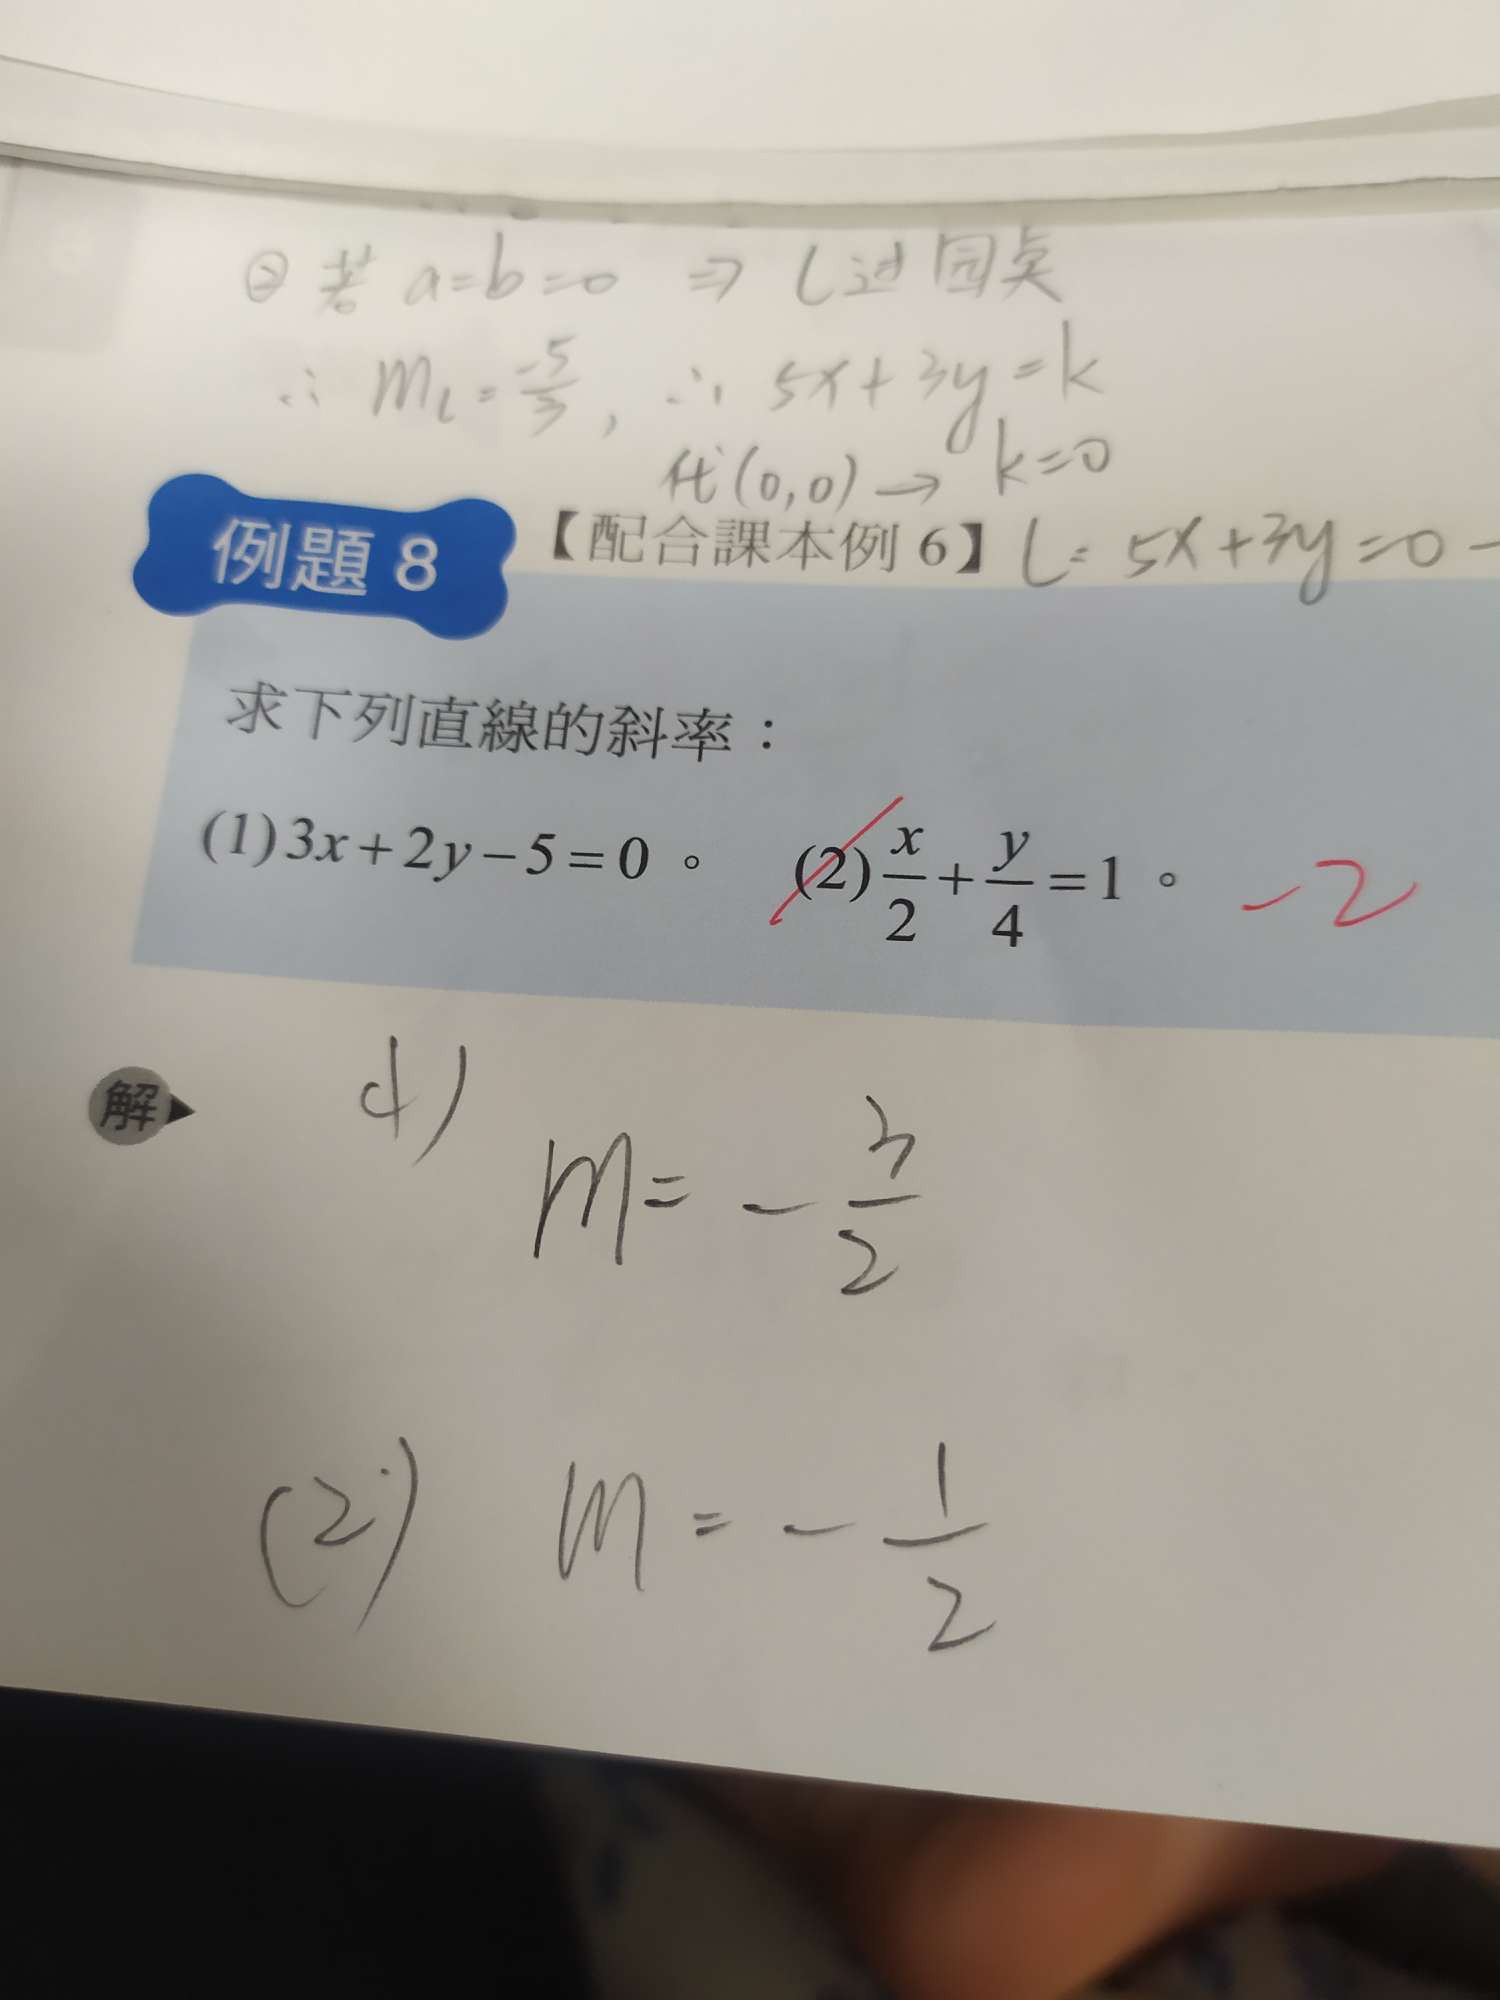 ② 若 a=b=0 ⇒ L过园点
∴ mL = -5/3 , ∴ 5x+3y=k
代(0,0) → k=0
例題 8 【配合課本例 6】 L: 5x+3y=0 -
求下列直線的斜率：
(1) 3x+2y-5=0。 (2) x/2 + y/4 = 1。 -2
解 (1)
m= - 3/2
(2) m = - 1/2